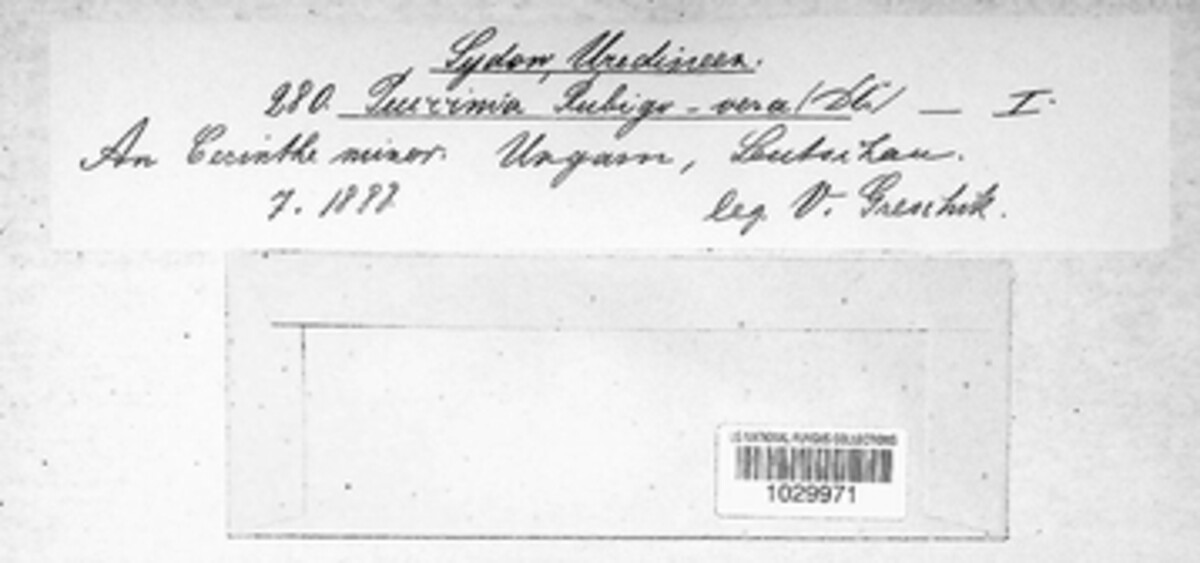 Sydow, Uredineen.
280. Puccinia Rubigo-vera (DC) — I.
An Cerinthe minor. Ungarn, Leutschau.
7. 1888 leg. V. Greschik.
US NATIONAL FUNGUS COLLECTIONS
1029971